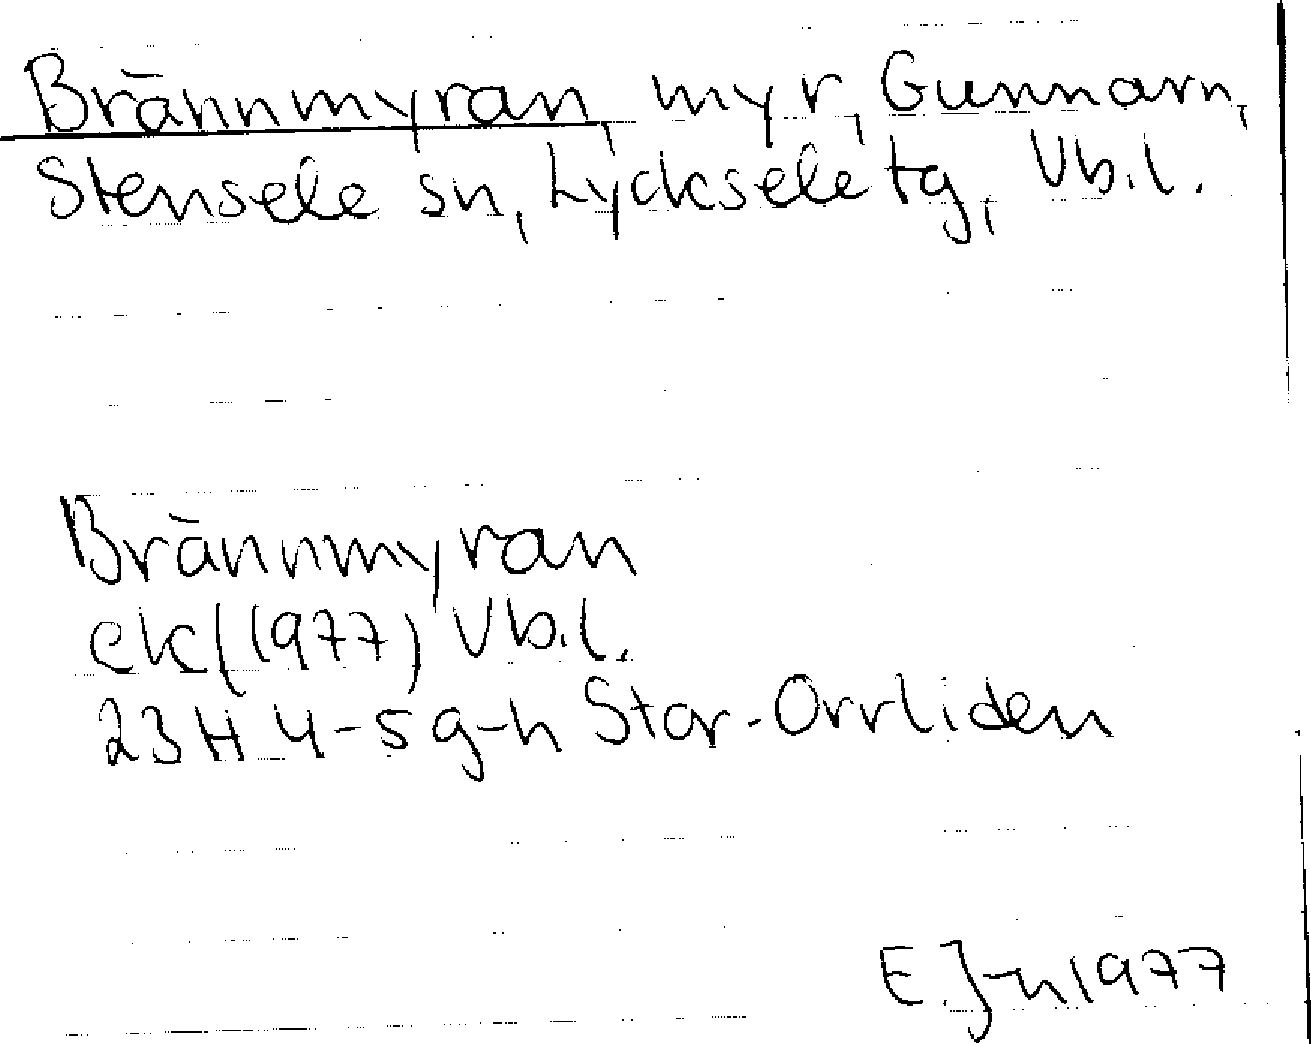 Brännmyran, myr, Gunnarn,
Stensele sn, Lycksele tg, Vb.l.
Brännmyran
ek(1977) Vb.l.
23H 4-5 g-h Stor-Orrliden
E J-n 1977